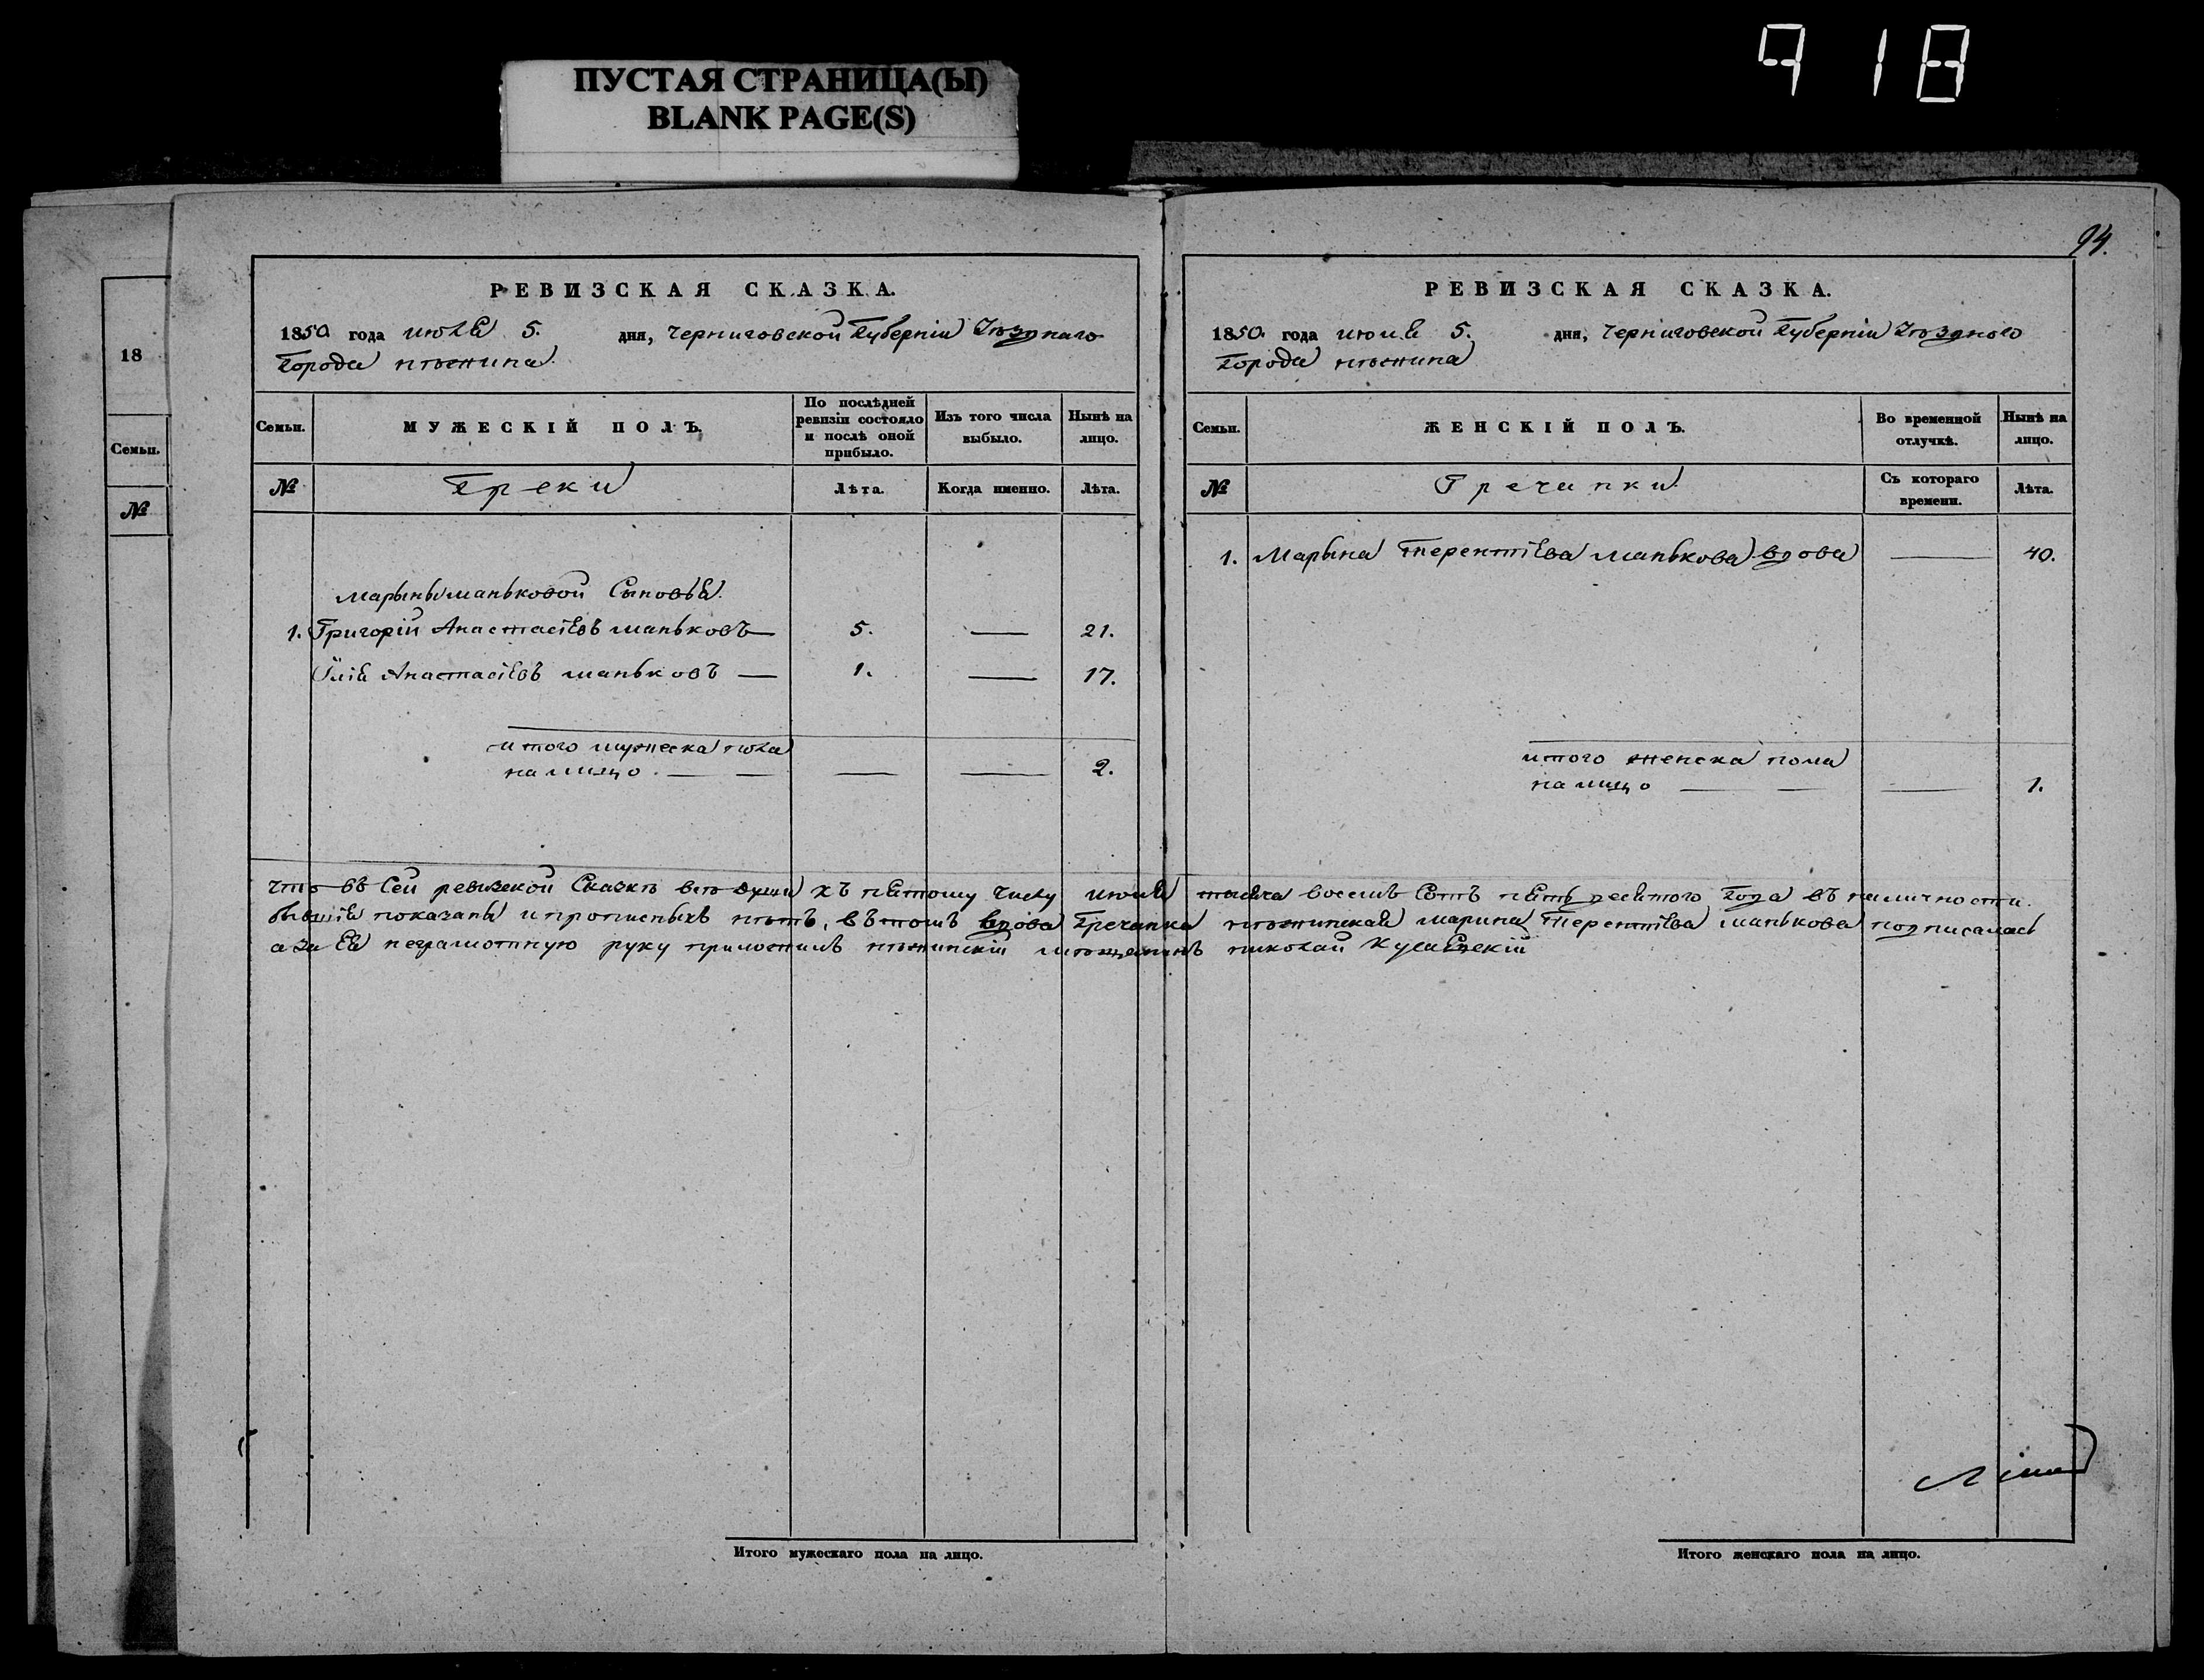 918
ПУСТАЯ СТРАНИЦА(Ы)
BLANK PAGE(S)
18
Семьи.
№
РЕВИЗСКАЯ СКАЗКА.
1850 года июля 5. дня, Черниговской Губерніи Уѣзднаго
Города нѣжина
Семьи.
МУЖЕСКІЙ ПОЛЪ.
По послѣдней ревизіи состояло и послѣ оной прибыло.
Изъ того числа выбыло.
Нынѣ на лицо.
№
Греки
Лѣта.
Когда именно.
Лѣта.
Марыны маньковой Сыновья
1. Григорій Анастасіевъ маньковъ — 5. — 21.
Илія Анастасіевъ маньковъ — 1. — 17.
итого мужеска пола
на лицо — — — — 2.
94.
РЕВИЗСКАЯ СКАЗКА.
1850 года июля 5. дня, Черниговской Губерніи Уѣздного
Города нѣжина
Семьи.
ЖЕНСКІЙ ПОЛЪ.
Во временной отлучкѣ.
Нынѣ на лицо.
№
Гречанки
Съ котораго времени.
Лѣта.
1. Марына Терентіева манькова вдова — 40.
итого женска пола
на лицо — — — 1.
что въ Сей ревизской Сказкѣ всѣ души къ пятому числу июля тысяча восемь Сотъ пять десятого Года въ наличности
бывшія показаны и прописныхъ нѣтъ, въ томъ вдова Гречанка нѣжинская марина Терентіева манькова подписалась
а за Ея неграмотную руку приложилъ нѣжинскій мѣщанинъ николай
Итого мужескаго пола на лицо.
Итого женскаго пола на лицо.